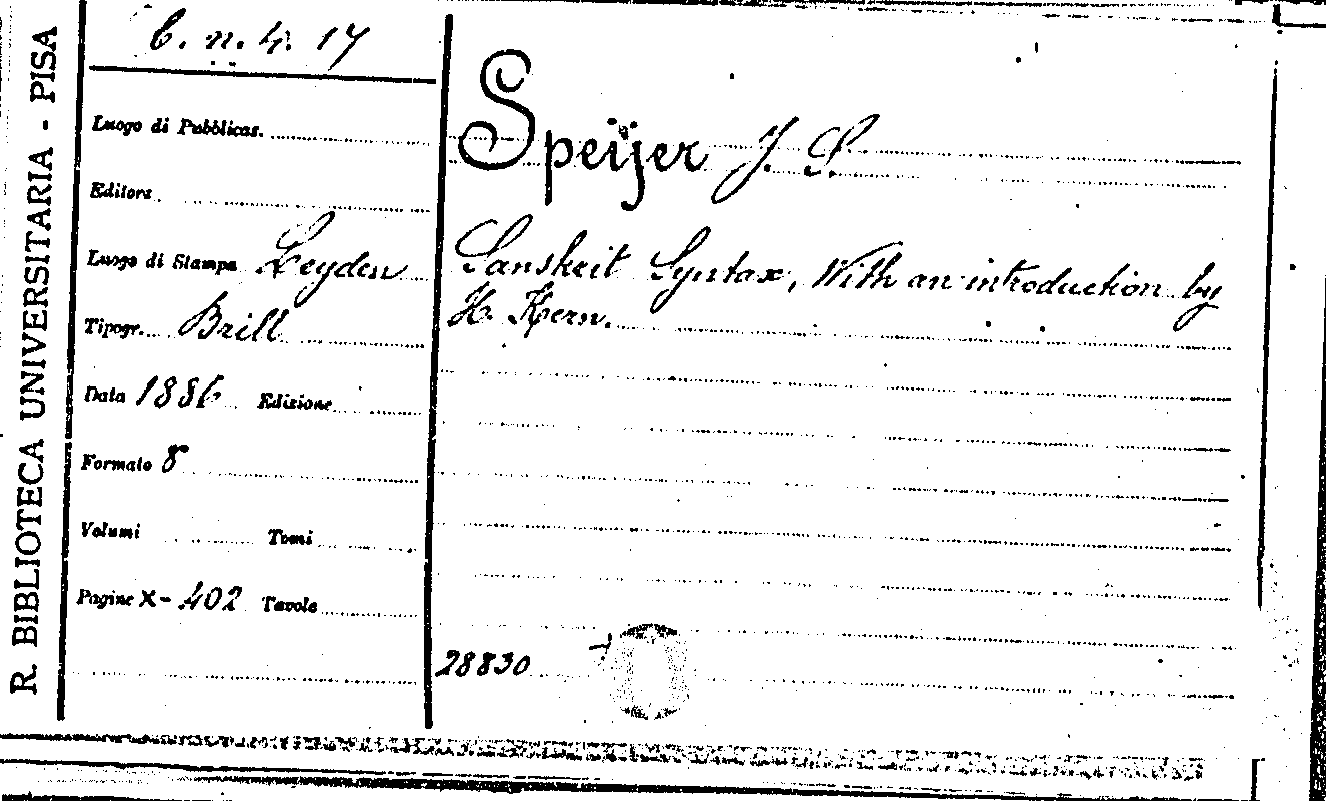 R. BIBLIOTECA UNIVERSITARIA - PISA
C. n. 4. 17
Luogo di Pubblicas.
Editore
Luogo di Stampa Leyden
Tipogr. Brill
Data 1886 Edizione
Formato 8
Volumi Tomi
Pagine X - 402 Tavole
Speijer J. S.
Sanskrit Syntax, With an introduction by
H. Kern.
28830